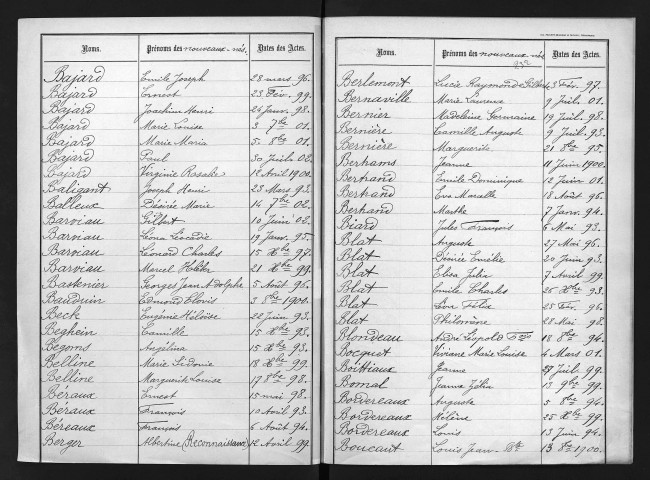 Noms. Prénoms des nouveaux-nés. Dates des Actes.
Bajard Emile Joseph 28 mars 96.
Bajard Ernest 23 Fév. 99.
Bajard Joachim Henri 24 Janv. 98.
Bajard Marie Louise 3 7bre 01.
Bajard Marie Maria 5 8bre 01.
Bajard Paul 30 Juil. 02.
Bajard Virginie Rosalie 12 Avril 1900.
Baligant Joseph Henri 23 Mars 93.
Balleux Désirée Marie 14 7bre 02.
Barviau Gilbert 10 Juin 02.
Barviau Léona Léocadie 19 Janv. 95.
Barviau Léonard Charles 15 Xbre 97.
Barviau Marcel 21 Xbre 99.
Bastenier Georges Jean Adolphe 5 Août 96.
Bauduin Edmond Clovis 3 8bre 1900.
Beck Eugénie Héloïse 22 Juin 93.
Beghein Camille 15 Xbre 98.
Begons Angélina 15 Xbre 93.
Belline Marie Sidonie 18 Xbre 99.
Belline Marguerite Louise 17 8bre 98.
Béraux Ernest 15 mai 98.
Béraux François 10 Avril 93.
Béreaux François 6 Août 94.
Berger Albertine (Reconnaissance) 12 Avril 99.
Noms. Prénoms des nouveaux-nés. Dates des Actes.
Berlemont Lucie Raymond Gilberte 3 Fév. 97.
Bernaville Marie Laurence 9 Juil. 01.
Bernier Madeleine Germaine 19 Juil. 98.
Bernière Camille Auguste 9 Juil. 93.
Bernière Marguerite 21 8bre 95.
Bertrams Jeanne 11 Juin 1900.
Bertrand Emile Dominique 12 Juin 01.
Bertrand Eva Marcelle 18 Août 96.
Bertrand Marthe 7 Janv. 94.
Biard Jules François 6 Mai 93.
Blat Auguste 27 Mai 96.
Blat Désiré Emélie 20 Juin 93.
Blat Elisa Julia 7 Avril 99.
Blat Emile Charles 26 Xbre 93.
Blat Léon Félix 25 Fév. 96.
Blat Philomène 28 Mai 98.
Blondeau André Léopold 18 8bre 94.
Bocquet Viviane Marie Louise 4 Mars 01.
Boittiaux Jeanne 27 Juil. 99.
Bomal Jeanne Julia 13 9bre 99.
Bordereaux Auguste 5 8bre 94.
Bordereaux Hélène 25 Xbre 99.
Bordereaux Louis 13 Juin 94.
Boucaut Louis Jean Bte 13 8bre 1900.